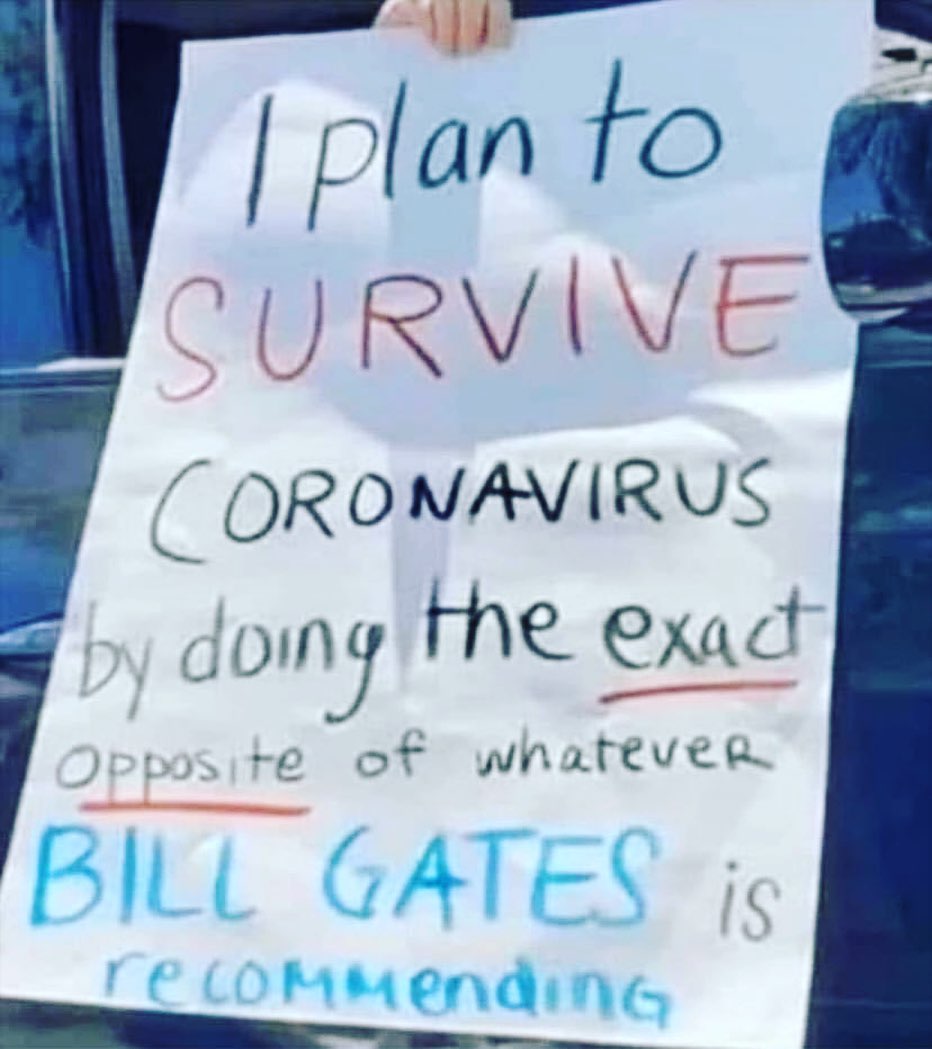 I plan to
SURVIVE
CORONAVIRUS
by doing the exact
opposite of whatever
BILL GATES is
recommending